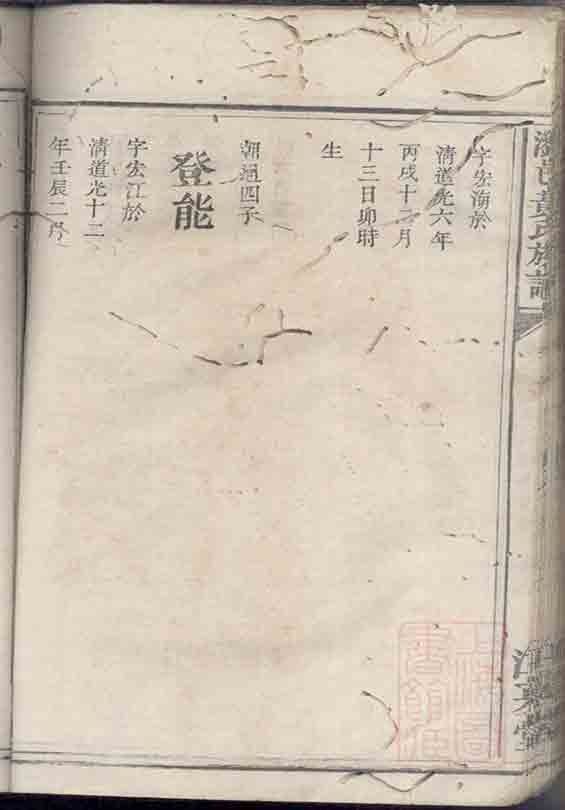 字宏海於
清道光六年
丙戌十二月
十三日卯時
生
朝通四子
登能
字宏江於
清道光十二
年壬辰二月
黃氏族譜
上海圖
書館藏